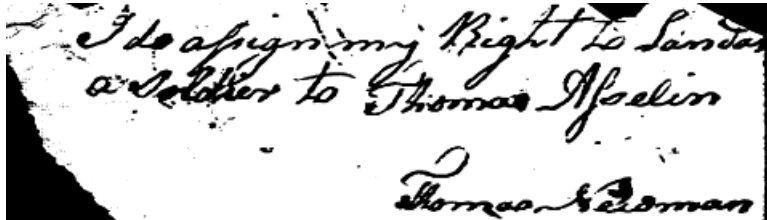 I do assign my Right to Land as
a Soldier to Thomas Asselin
Thomas Newman